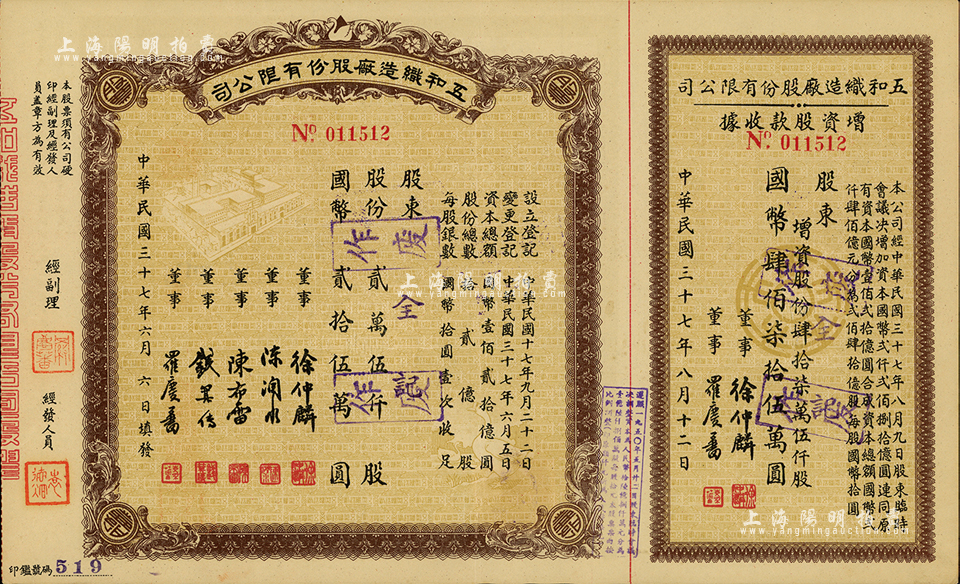 五和織造廠股份有限公司
No. 011512
股東
股份貳萬伍仟股
國幣貳拾伍萬圓
設立登記 中華民國十七年九月二十二日
變更登記 中華民國三十七年六月五日
資本總額 國幣壹佰貳拾億圓
股份總數 拾貳億股
每股銀數 國幣拾圓壹次收足
董事 徐仲麟
董事
董事 陳布雷
董事
董事 羅慶蕃
中華民國三十七年六月六日填發
本股票須有公司硬
印經副理及經發人
員蓋章方為有效
經副理
經發人員
印鑑號碼 519
作廢
全
作廢
記
五和織造廠股份有限公司
增資股款收據
No. 011512
本公司經中華民國三十七年八月九日股東臨時
會議決增加資本國幣弍仟弍佰捌拾億圓連同原
有資本國幣壹佰貳拾億圓合成資本總額國幣弍
仟肆佰億元分為弍佰肆拾億股每股國幣拾圓
股東
增資股份肆拾柒萬伍仟股
國幣肆佰柒拾伍萬圓
董事 徐仲麟
董事 羅慶蕃
中華民國三十七年八月十二日
全
記
上海陽明拍賣
www.yangmingauction.com
上海陽明拍賣
www.yangmingauction.com